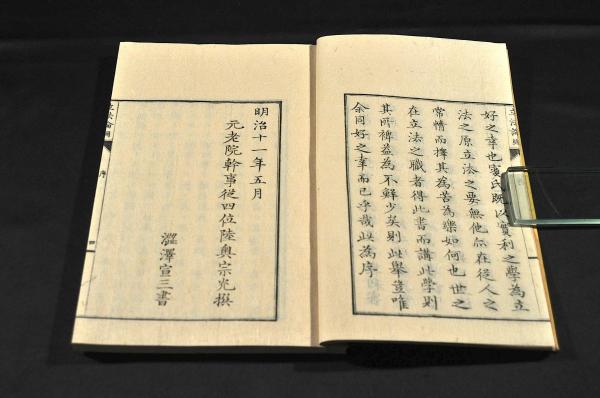 立法論綱
好之幸也賓氏既以實利之學為立
法之原立法之要無他亦在從人之
常情而擇其為苦為樂如何也世之
在立法之職者得此書而講此學則
其所裨益為不鮮少矣則此舉豈唯
余同好之幸而已乎哉是為序
明治十一年五月
元老院幹事從四位陸奧宗光撰
澀澤宣三書
立法論綱
序
四